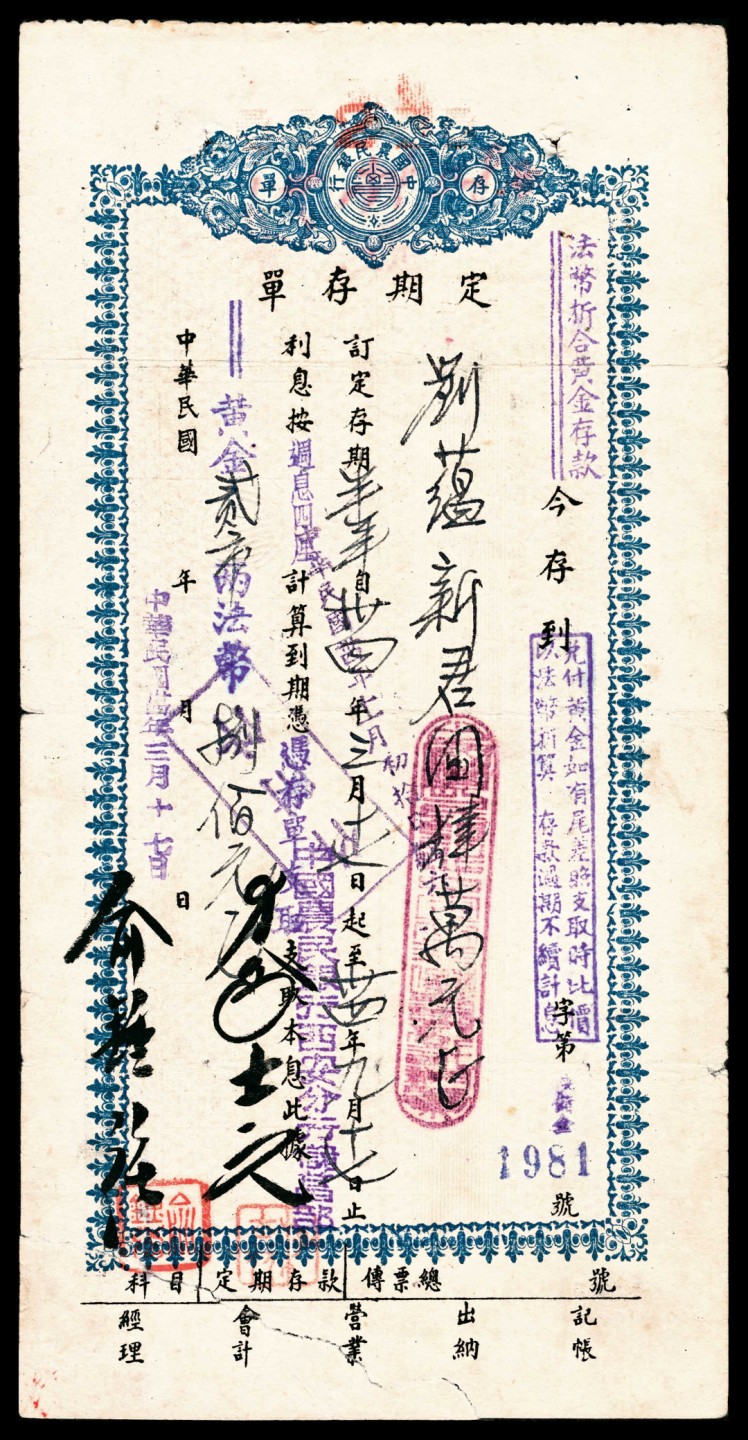 中國農民銀行
存
單
定期存單
法幣折合黃金存款
今存到
兌付黃金如有尾差照支取時比價
以法幣折算 存款過期不續計息
字第
1981
號
劉蘊新君國幣
萬元
訂定存期半年自卅四年三月十七日起至卅四年九月十七日止
利息按週息四厘計算到期憑 憑存單支取 支取本息此據
中國農民銀行西安分行儲蓄部
黃金貳 兩法幣捌佰元
中華民國 年 月 日
中華民國卅四年三月十七日
科目
定期存款
傳票總
號
經理
會計
營業
出納
記帳